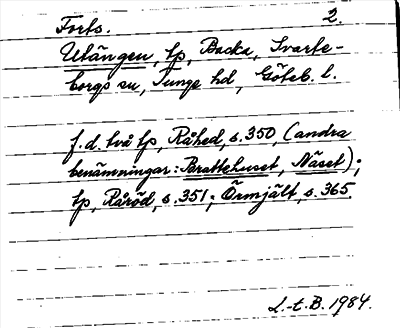 Forts. 2.
Utängen, tp, Backa, Svarte-
borgs sn, Tunge hd, Göteb. l.
f.d. två tp, Råhed, s. 350, (andra
benämningar: Brattehuset, Näset);
tp, Råröd, s. 351; Örmjält, s. 365.
L.-t. B. 1984.